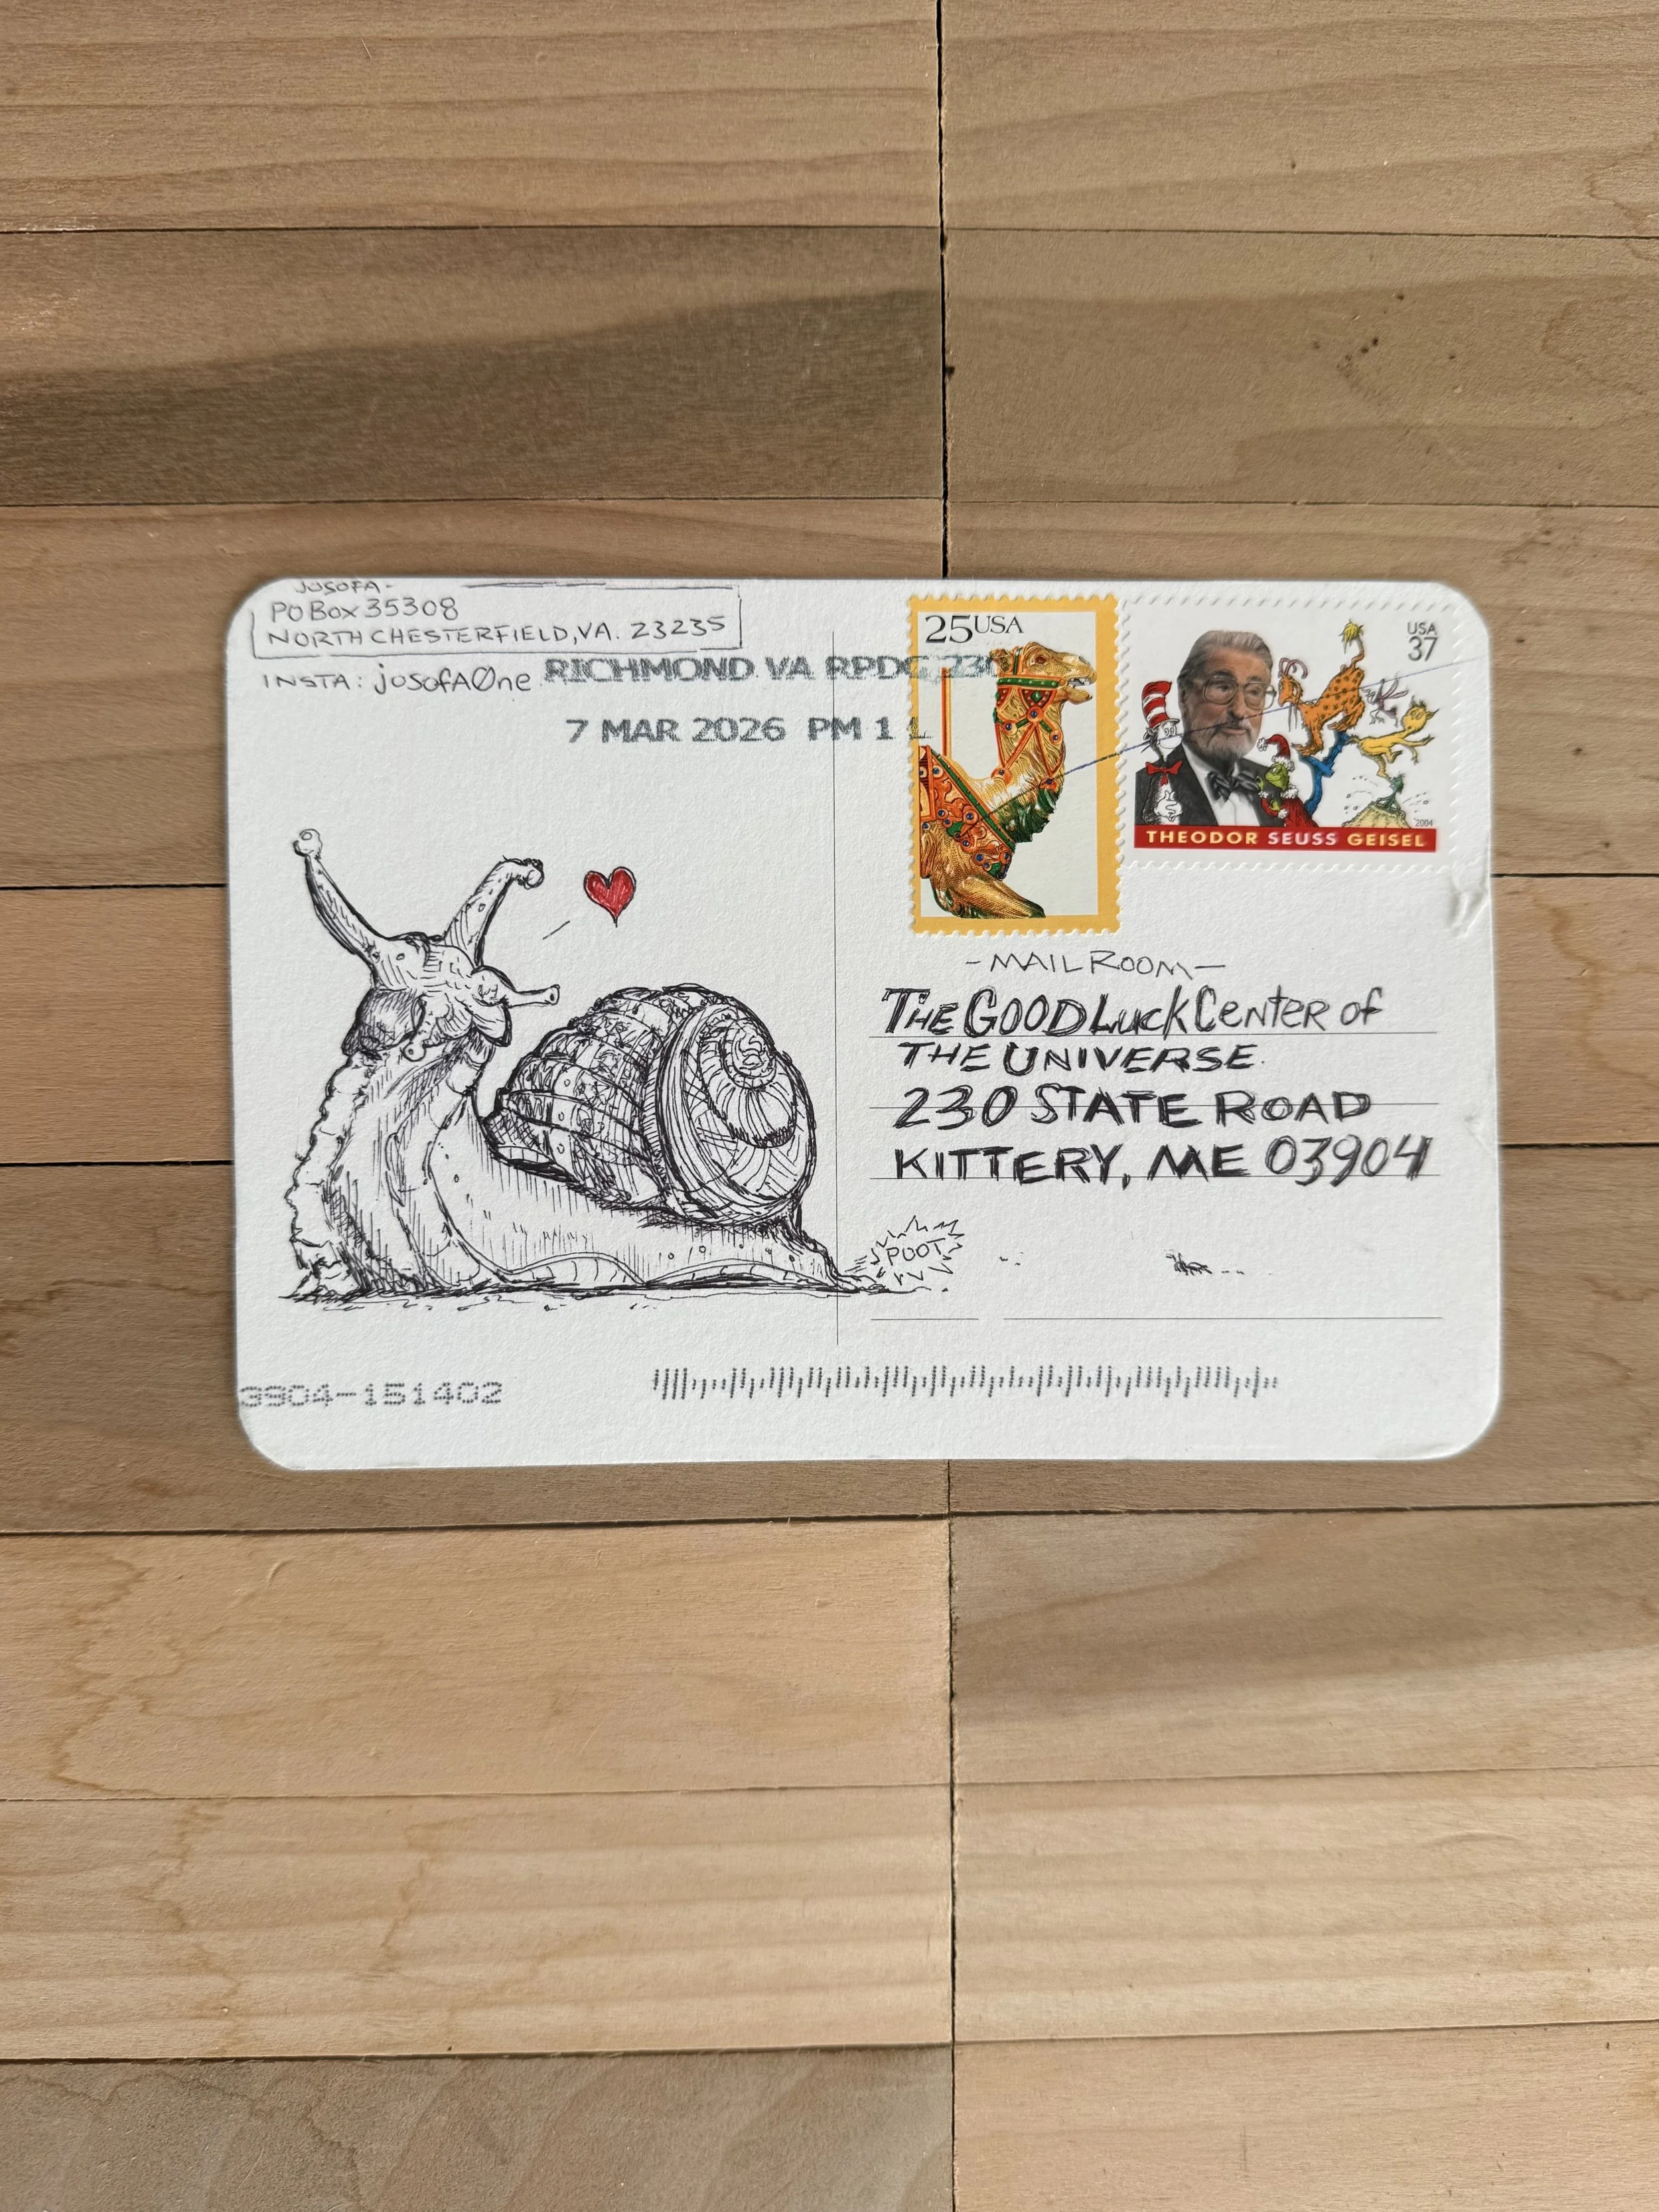 JOSOFA-
PO BOX 35308
NORTH CHESTERFIELD, VA. 23235
INSTA: josofAØne
RICHMOND VA RPDC 230
7 MAR 2026 PM 1 L
25USA
USA
37
2004
THEODOR SEUSS GEISEL
-MAIL ROOM-
THE GOOD LUCK CENTER of
THE UNIVERSE.
230 STATE ROAD
KITTERY, ME 03904
POOT
3904-151402